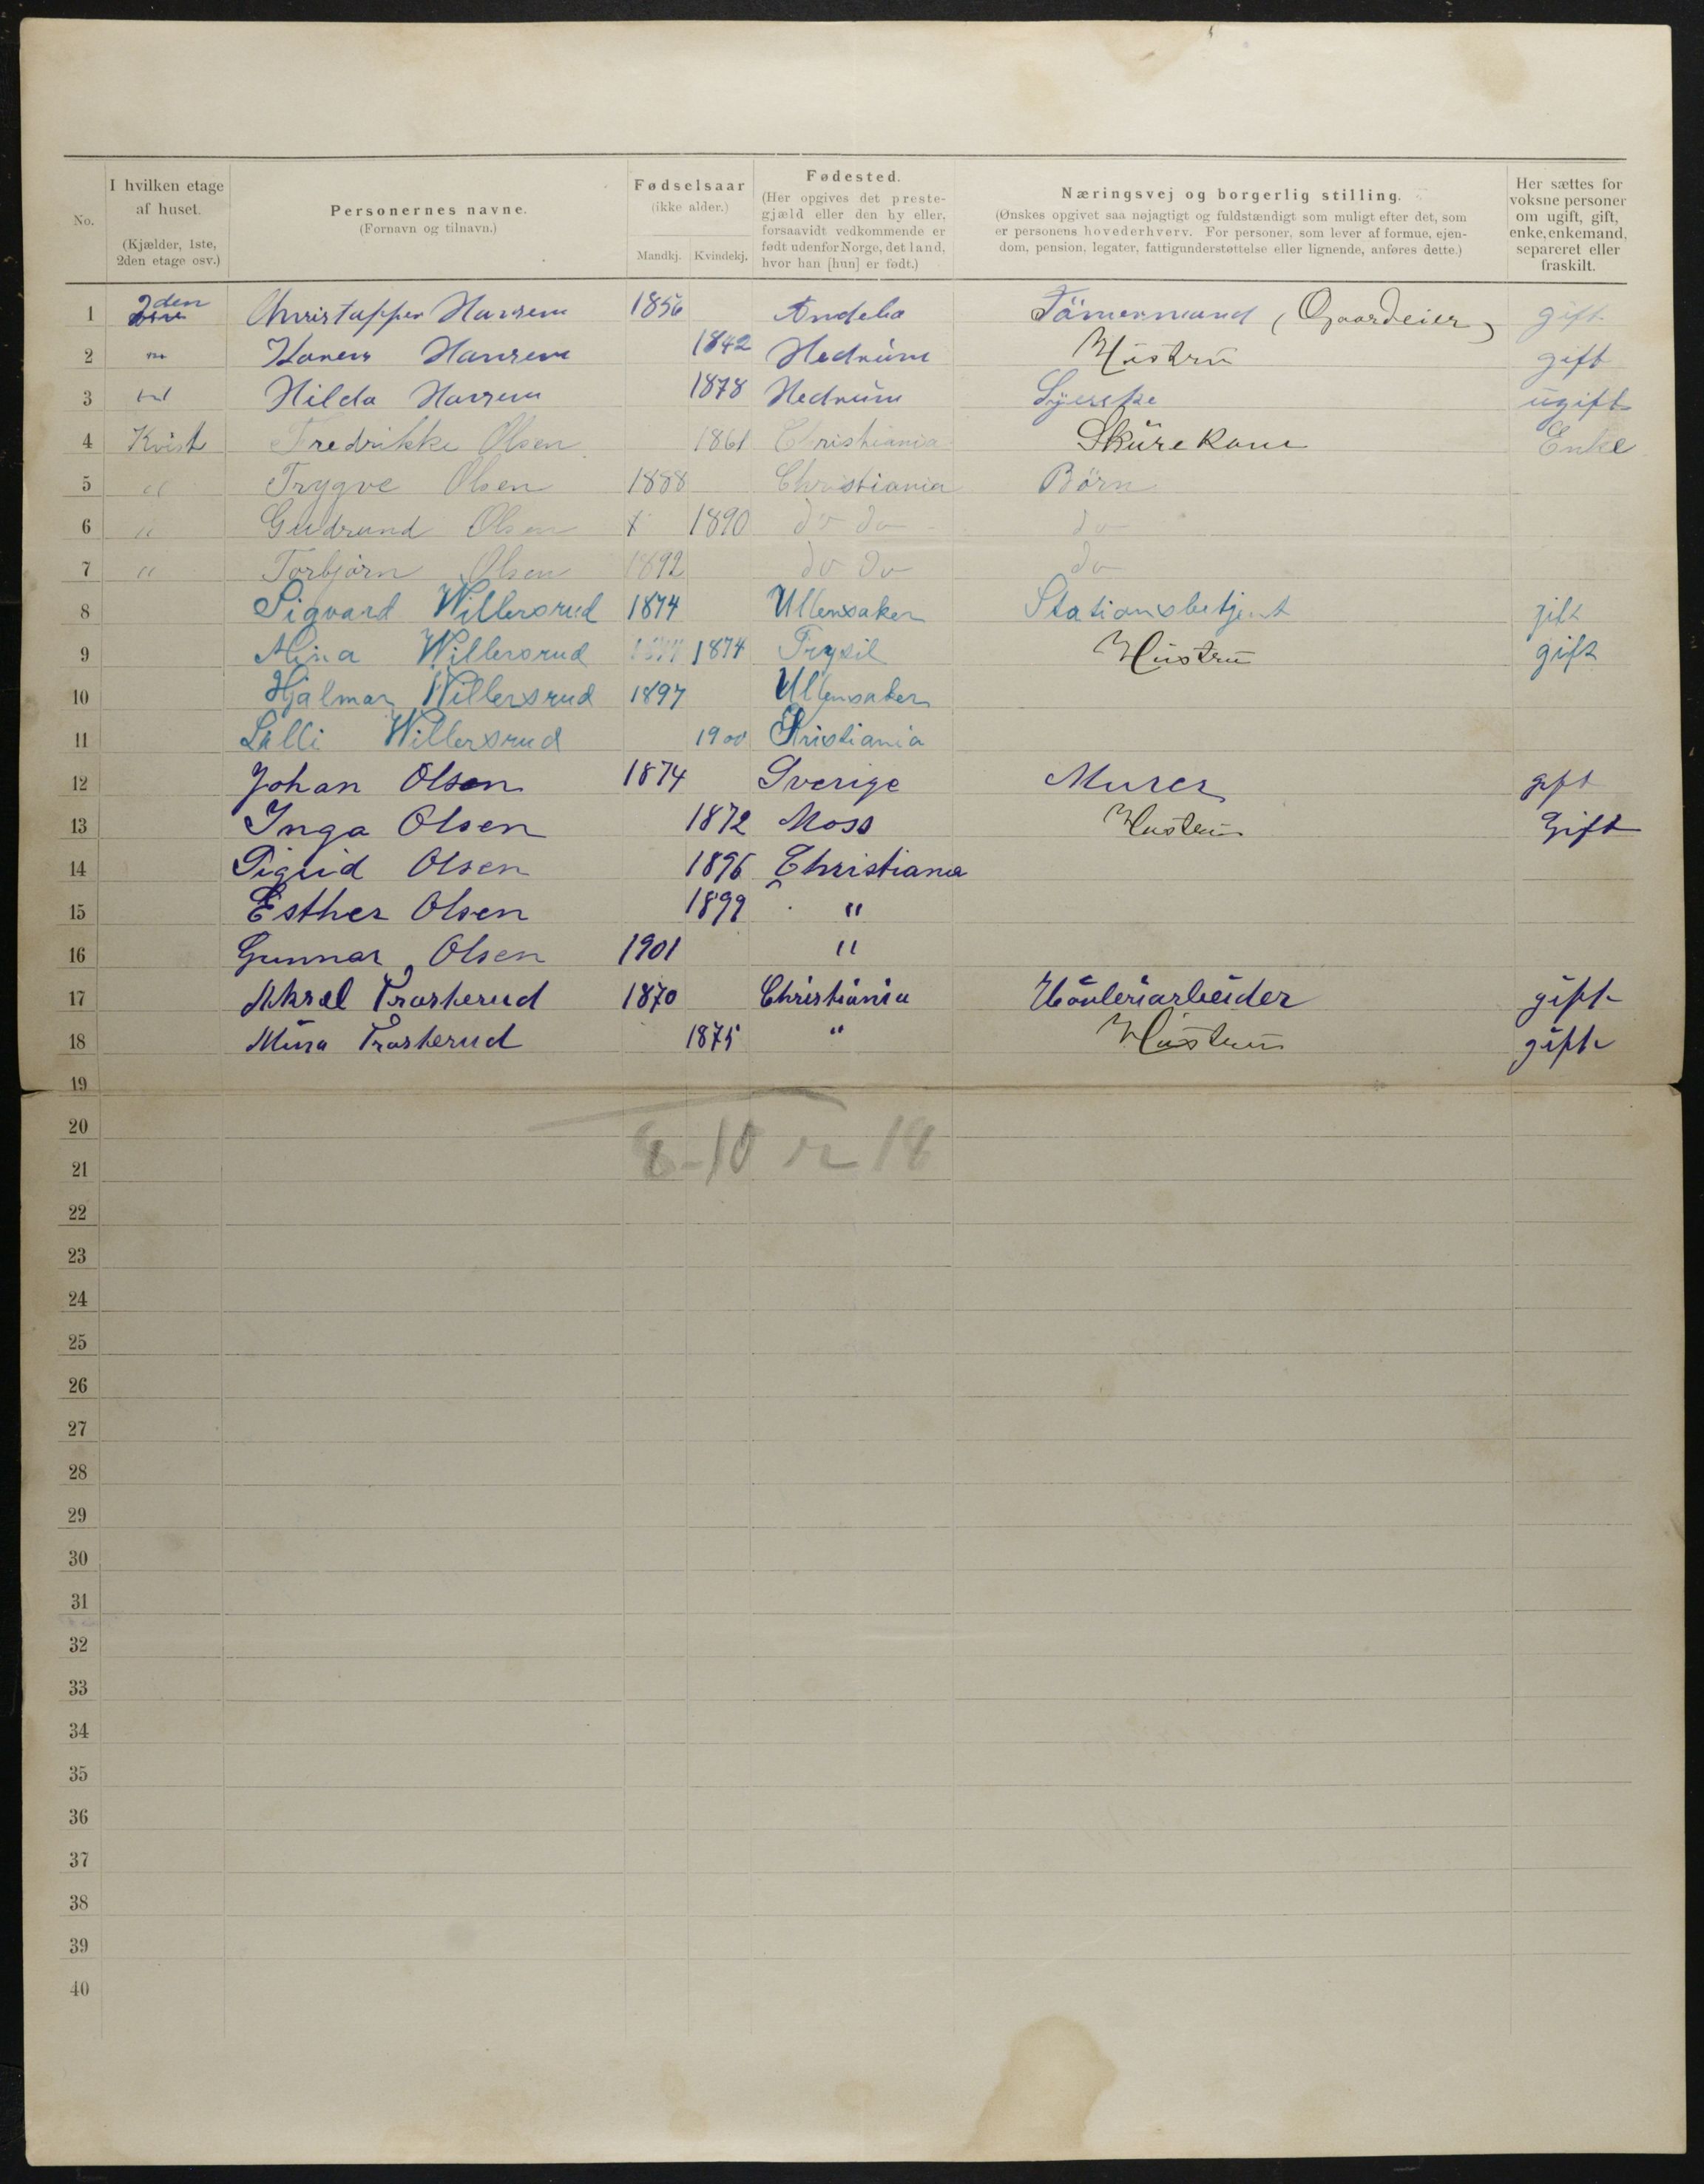 No.
I hvilken etage af huset. (Kjælder, 1ste, 2den etage osv.)
Personernes navne. (Fornavn og tilnavn.)
Fødselsaar (ikke alder.) Mandkj. Kvindekj.
Fødested. (Her opgives det prestegjæld eller den by eller, forsaavidt vedkommende er født udenfor Norge, det land, hvor han [hun] er født.)
Næringsvej og borgerlig stilling. (Ønskes opgivet saa nøjagtigt og fuldstændigt som muligt efter det, som er personens hovederhverv. For personer, som lever af formue, ejendom, pension, legater, fattigunderstøttelse eller lignende, anføres dette.)
Her sættes for voksne personer om ugift, gift, enke, enkemand, separeret eller fraskilt.
1 2den Christopher Hansen 1856 Andebo Tömermand (Gaardeier) gift
2 " Karen Hansen 1842 Hedrum Hustru gift
3 " Hilda Hansen 1878 Hedrum Syerske ugift
4 Kvist Fredrikke Olsen 1861 Christiania Skurekone Enke
5 " Trygve Olsen 1888 Christiania Börn
6 " Gudrund Olsen x 1890 do do do
7 " Torbjørn Olsen 1892 do do do
8 Sigvard Willersrud 1874 Ullensaker Stationsbetjent gift
9 Mina Willersrud 1874 Trysil Hustru gift
10 Hjalmar Willersrud 1897 Ullensaker
11 Lalli Willersrud 1900 Kristiania
12 Johan Olsen 1874 Sverige Murer gift
13 Inga Olsen 1872 Moss Hustru Gift
14 Sigrid Olsen 1896 Christiana
15 Esther Olsen 1899 "
16 Gunnar Olsen 1901 "
17 Aksel Trosterud 1870 Christiania Höuleriarbeider gift
18 Mina Trosterud 1875 " Hustru gift
19
20
8-10 = 18
21
22
23
24
25
26
27
28
29
30
31
32
33
34
35
36
37
38
39
40